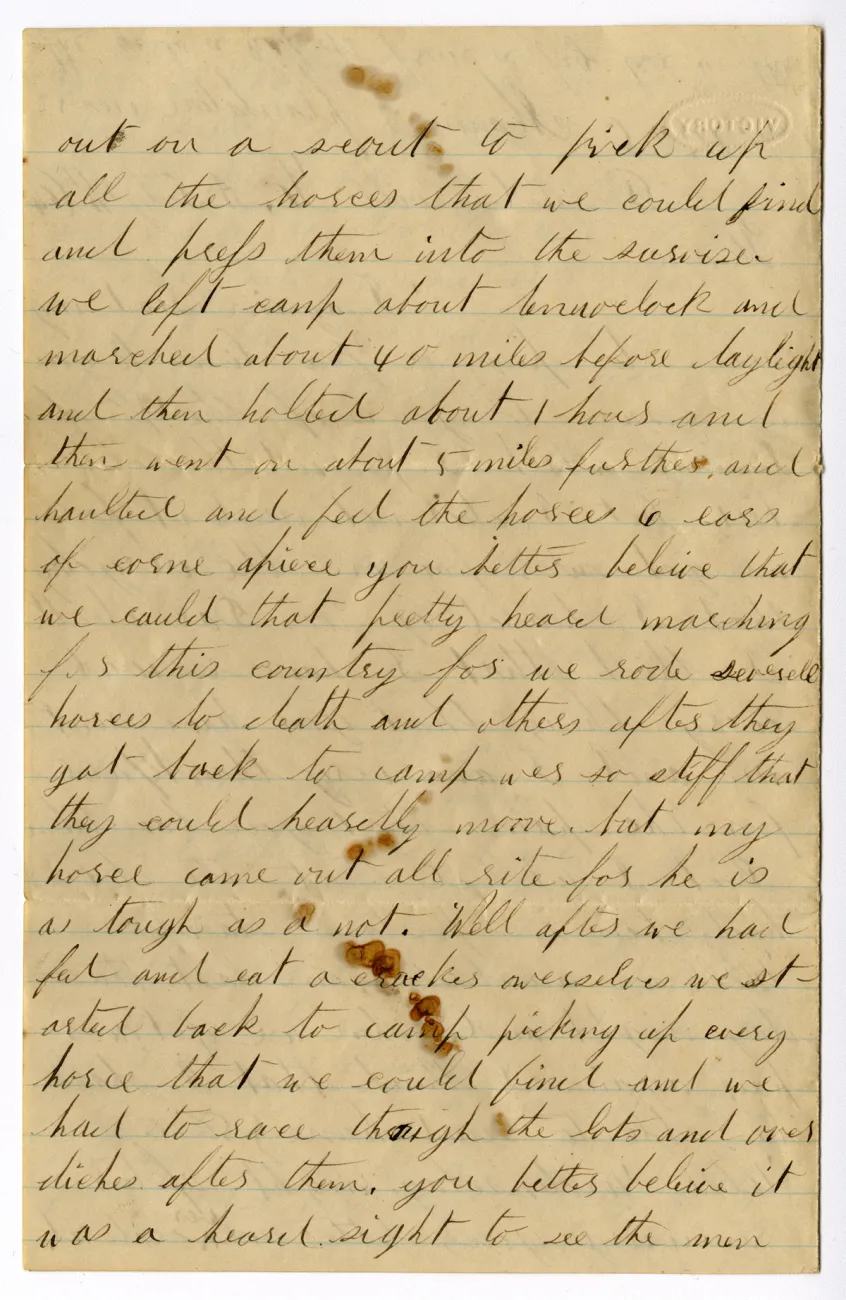 VICTORY
out on a scout to pick up
all the horces that we could find
and press them into the survise.
we left camp about tenuoclock and
marched about 40 miles before daylight
and then holted about 1 hour and
then went on about 5 miles further, and
haulted and fed the horces 6 ears
of corne apiece you better beleive that
we could that pretty heard marching
for this country for we rode severell
horces to death and others after they
got back to camp wer so stiff that
they could heardly moove. but my
horce came out all rite for he is
as tough as a not. Well after we had
fed and eat a cracker owerselves we st-
arted back to camp picking up every
horce that we could find and we
had to race though the lots and over
diches after them. you better beleive it
was a heard sight to see the men